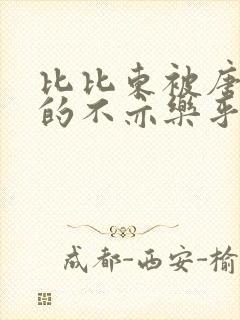 比比东被唐
的不亦乐乎
成都-西安-榆